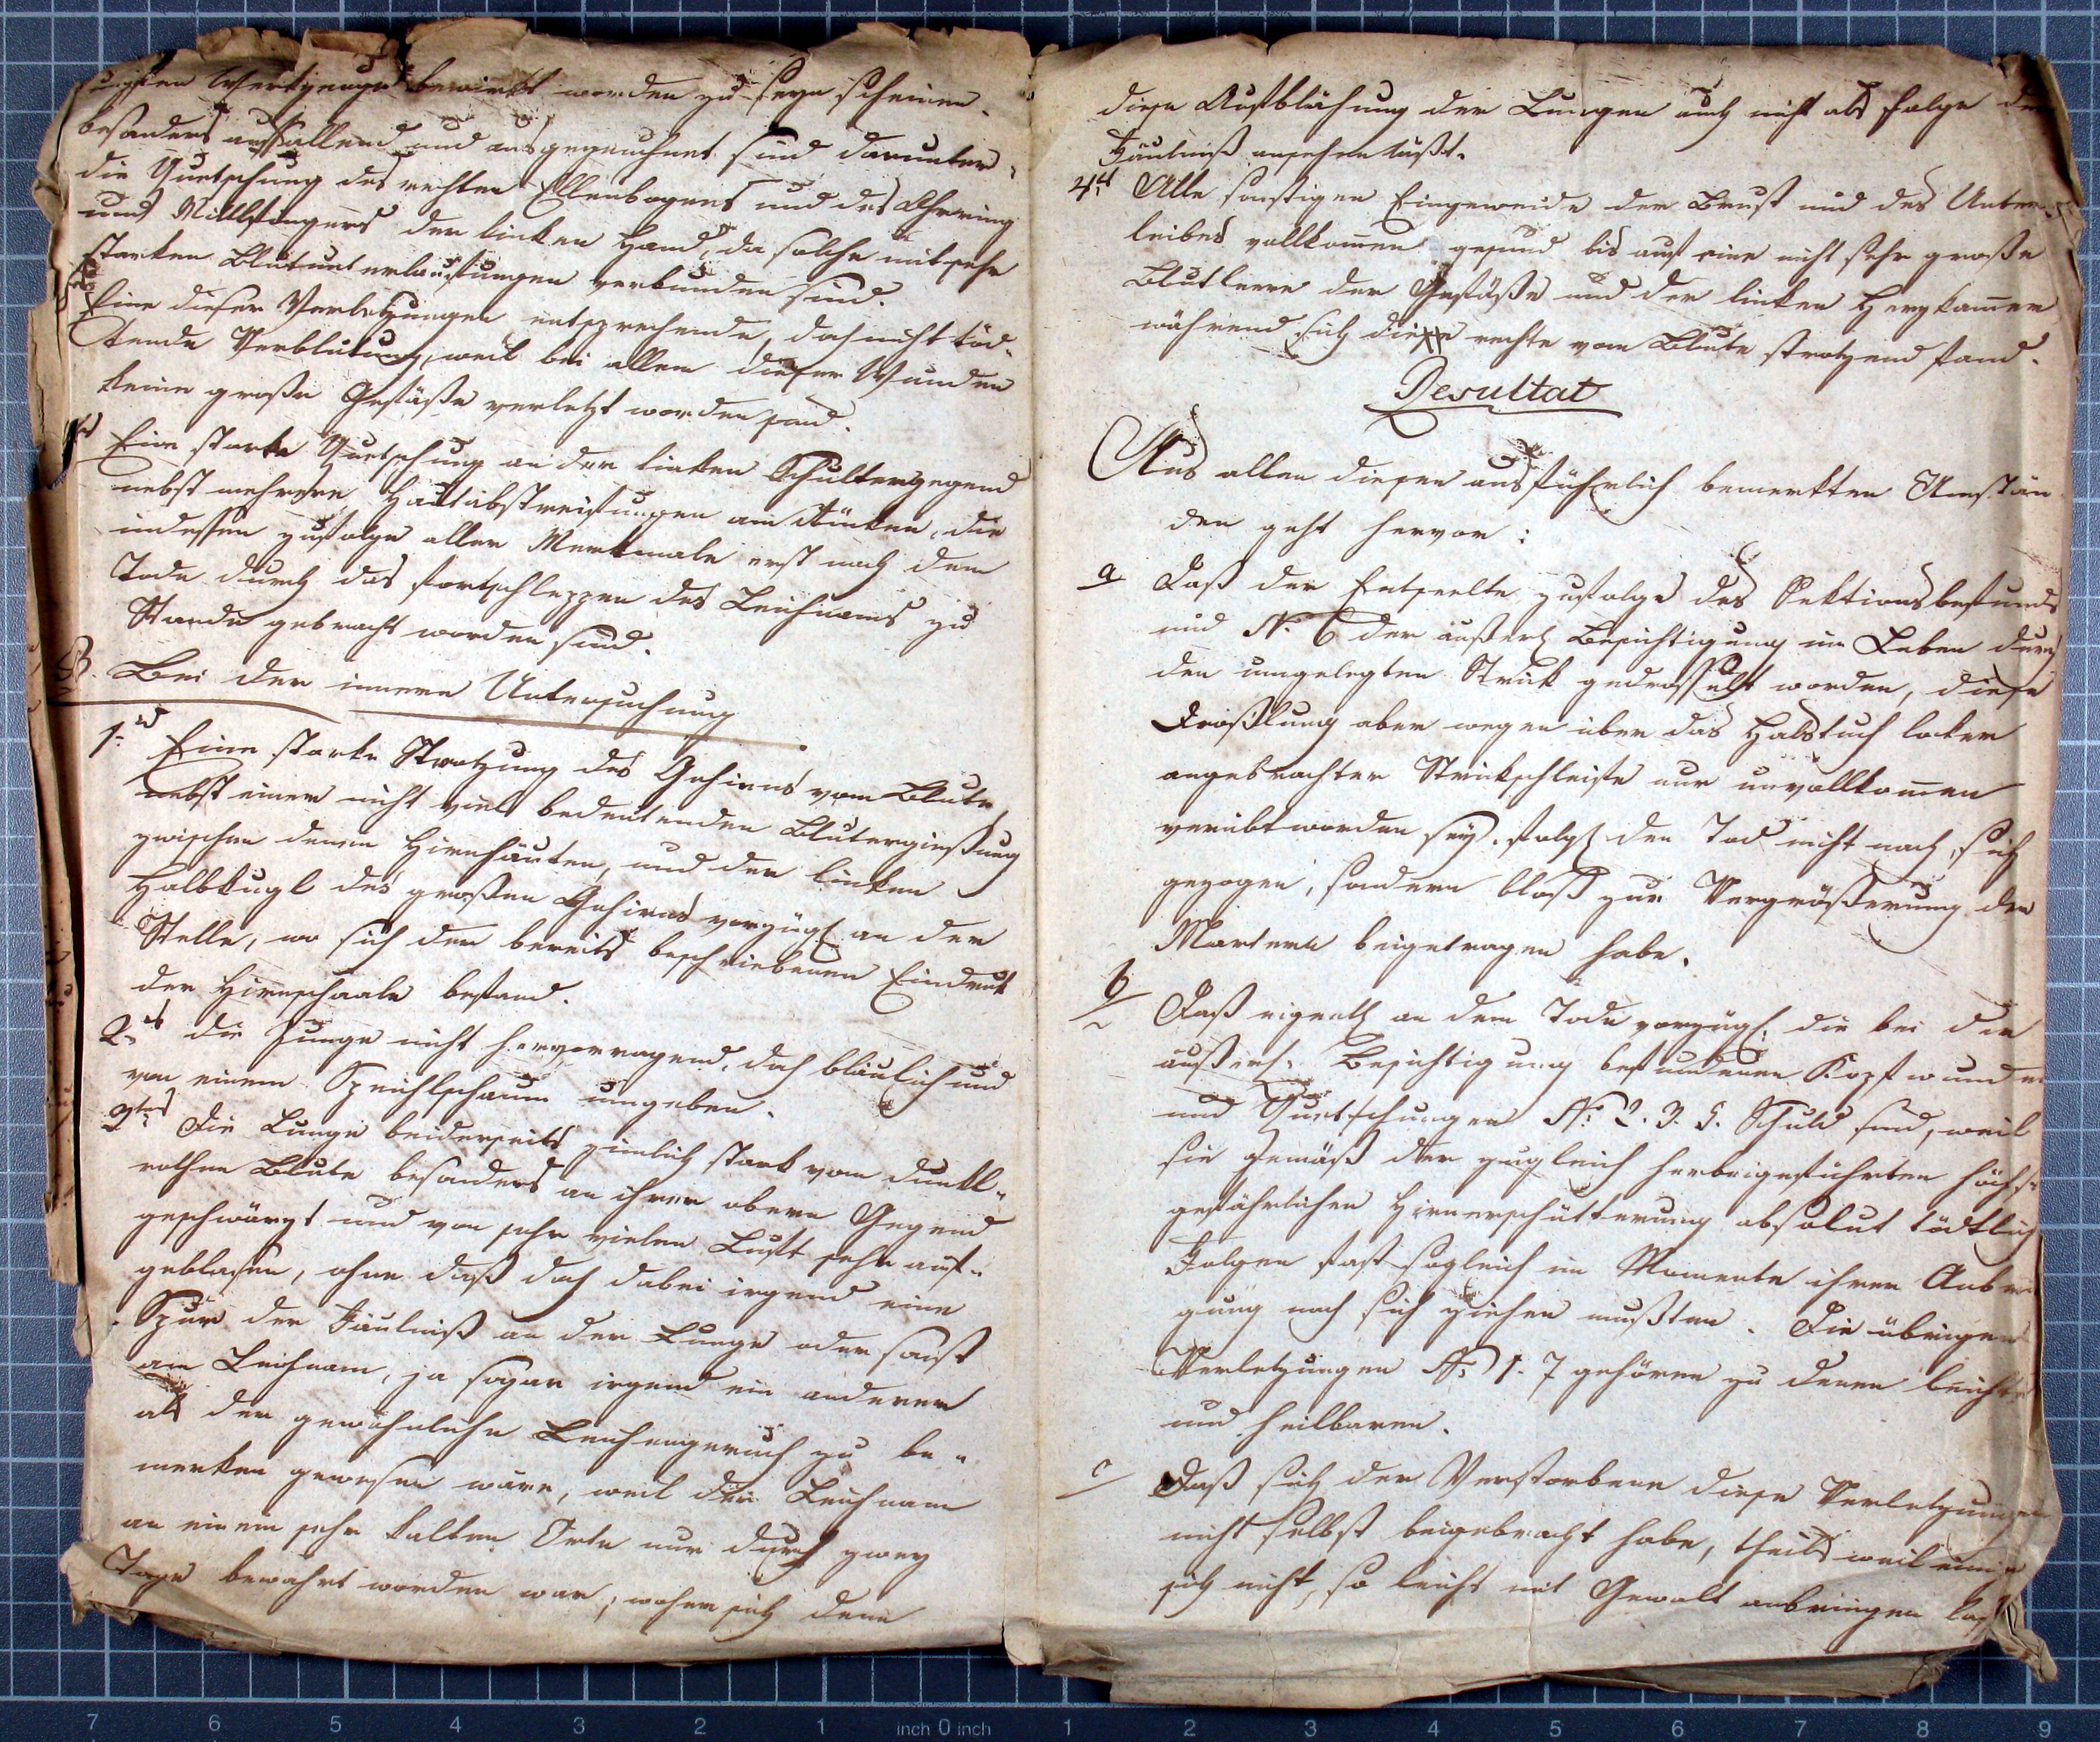 Werkzeuge bewirkt worden zu seyn scheinen.
besonders auffallend und ausgezeichnet sind darunter,
die Quetschung des rechten Ellenbogens und des Ohrring
und Mittlfingers der linken Hand, da solche mit sehr
starken Blutunterlaufungen verbunden sind.
Eine dieser Verletzungen entsprechende, doch nicht töd-
tende Verblutung, weil bei allen dieser Wunden
keine große Gefäße verletzt worden sind.
Eine starke Quetschung an der linken Schultergegend
nebst mehrere Hautabstreifungen am Rücken, die
indessen zufolge aller Merkmale erst nach dem
Tode durch das Fortschleppen des Leichnams zu
Stande gebracht worden sind.
B. Bei der innern Untersuchung
1. Eine starke Strotzung des Gehirns vom Blute,
nebst einer nicht viel bedeutenden Blutergießung
zwischen denen Hirnhäuten, und der linken
Halbkugl des großen Gehirns vorzügl. an der
Stelle, wo sich der bereits beschriebenen Eindruk
der Hirnschaale befand.
2. die Zunge nicht hervorragend, doch blaulich und
von einem Speichlschaum umgeben.
3tens Die Lunge beiderseits zimlich stark vom dunkl-
rothen Blute besonders an ihrer obern Gegend
geschwärzt und von sehr vielen Luft sehr auf-
geblasen, ohne daß doch dabei irgend eine
Spur der Fäulniß an der Lunge oder sonst
am Leichnam, ja sogar irgend ein anderer
als der gewöhnliche Leichengeruch zu be-
merken gewesen wäre, weil der Leichnam
an einem sehr kalten Orte nur durch zwey
Tage bewahrt worden war, woher sich denn
diese Aufblähung der Lungen auch nicht als Folge der
Fäulniß ansehen läßt.
4. Alle sonstigen Eingeweide der Brust und des Unter-
leibes vollkomen gesund bis auf eine nicht sehr große
Blutleere der Gefäße und der linken Herzkamer
während sich die rechte vom Blute strotzend fand.
Resultat
Aus allen diesen ausführlich bemerkten Umstän
den geht hervor:
a Daß der Entseelte zufolge des Sektionsbefunds
und N. 6 der äußerl. Besichtigung im Leben durch
den umgelegten Strick gedrosselt worden, diese
Droßlung aber wegen über das Halstuch loker
angebrachter Strickschleife nur unvollkomen
verübt worden sey. folgl. den Tod nicht nach sich
gezogen, sondern bloß zur Vergrößerung der
Martern beigetragen habe.
b Daß eigentl. an dem Tode vorzügl. die bei der
äußerl. Besichtigung befundenen Kopfwunden
und Quetschungen N: 2. 3. 5. Schuld sind, weil
sie gemäß der zugleich herbeigeführten höchst
gefährlichen Hirnerschütterung absolut tödtlich
Folgen fast sogleich im Momente ihrer Anbrin
gung nach sich ziehen mußten. Die übrigen
Verletzungen N: 1. 7 gehören zu denen leichte
und heilbaren.
c Daß sich der Verstorbene diese Verletzungen
nicht selbst beigebracht habe, theils weil einige
sich nicht so leicht mit Gewalt anbringen